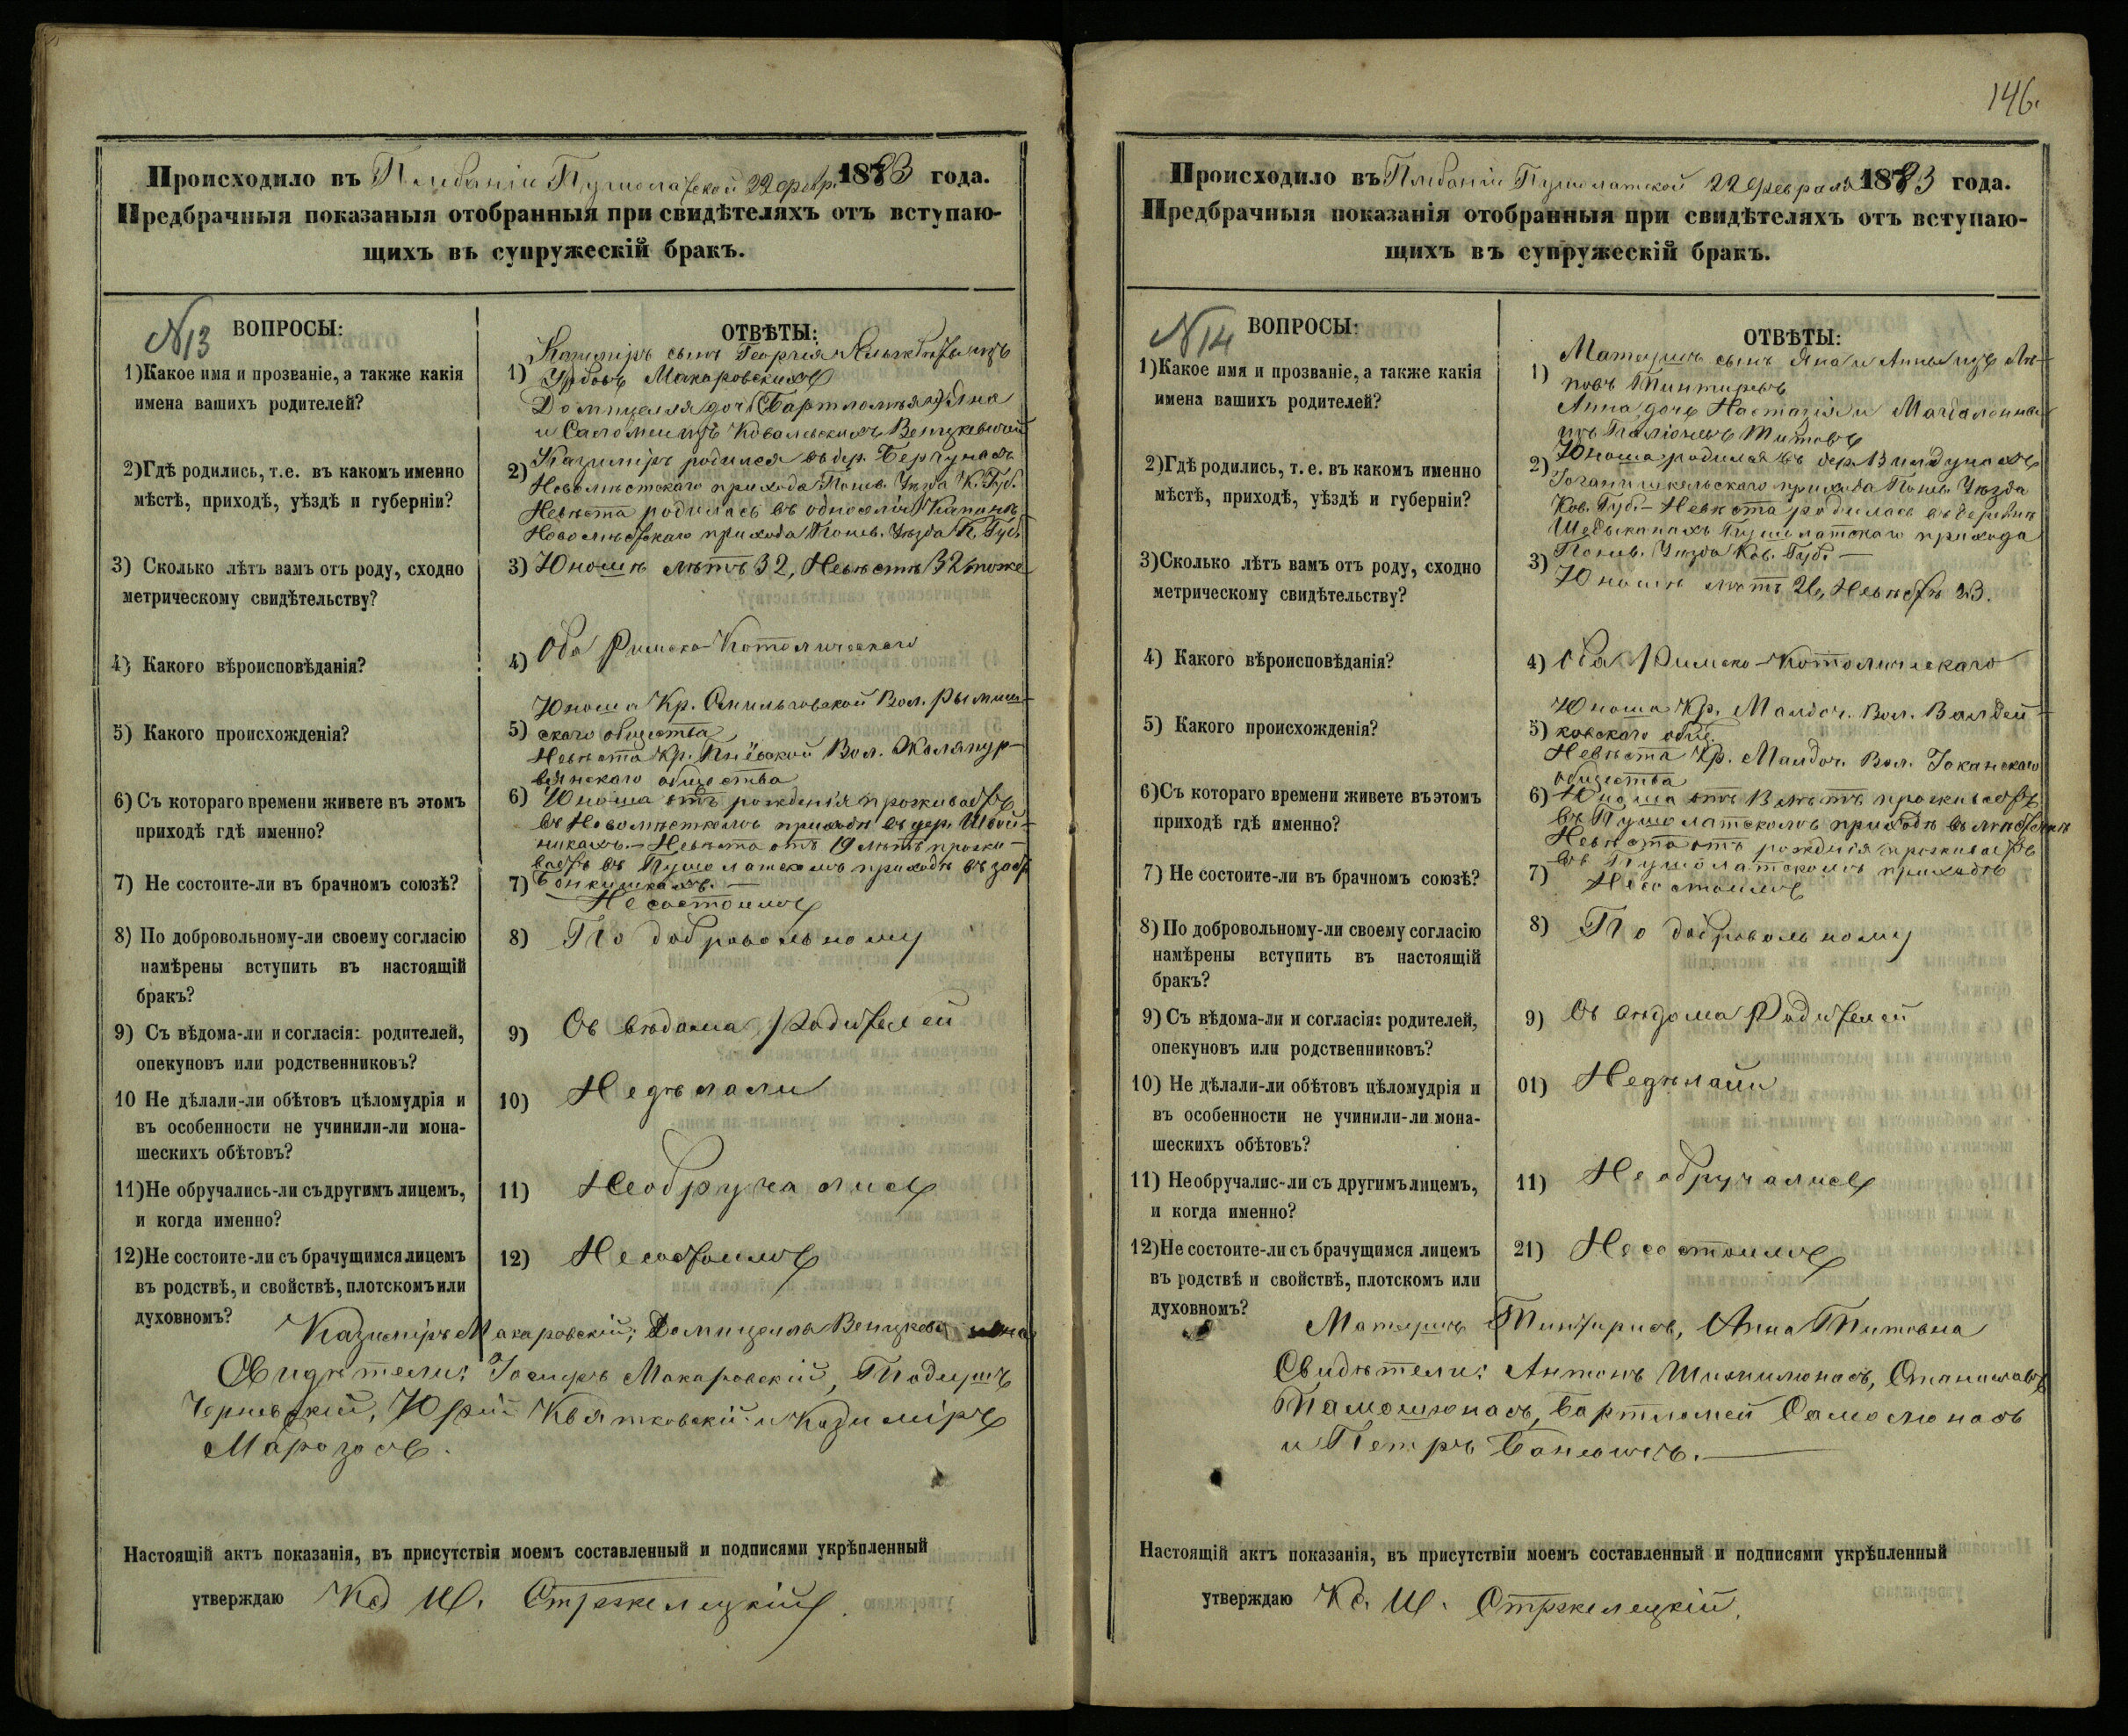 Происходило въ Плебаніи Пушолатской 22 февр. 1883 года.
Предбрачныя показаныя отобранныя при свидѣтеляхъ отъ вступаю-
щихъ въ супружескій бракъ.
N13
ВОПРОСЫ:
1) Какое имя и прозваніе, а также какія
имена вашихъ родителей?
2) Гдѣ родились, т. е. въ какомъ именно
мѣстѣ, приходѣ, уѣздѣ и губерніи?
3) Сколько лѣтъ вамъ отъ роду, сходно
метрическому свидѣтельству?
4) Какого вѣроисповѣданія?
5) Какого происхожденія?
6) Съ котораго времени живете въ этомъ
приходѣ гдѣ именно?
7) Не состоите-ли въ брачномъ союзѣ?
8) По добровольному-ли своему согласію
намѣрены вступить въ настоящій
бракъ?
9) Съ вѣдома-ли и согласія: родителей,
опекуновъ или родственниковъ?
10 Не дѣлали-ли обѣтовъ цѣломудрія и
въ особенности не учинили-ли мона-
шескихъ обѣтовъ?
11) Не обручались-ли съ другимъ лицемъ,
и когда именно?
12) Не состоите-ли съ брачущимся лицемъ
въ родствѣ, и свойствѣ, плотскомъ или
духовномъ?
ОТВѢТЫ:
1) Казиміръ сынъ Георгія
Урбовъ Макаровскихъ
Домицелля дочь Бартломѣя Яна
и Саломеи изъ Ковалевскихъ
2) Казиміръ родился въ дер.
Новомѣстскаго прихода Понев. Уѣзда К. Губ.
Невѣста родилась въ
Новомѣстскаго прихода Понев. Уѣзда К. Губ.
3) Юношѣ лѣтъ 32, Невѣстѣ 32 тоже
4) Оба Римско-Католическаго
5) Юноша Кр. Смильговской Вол.
скаго общества
Невѣста Кр. Вол.
общества
6) Юноша отъ рожденія проживаетъ
въ Новомѣстскомъ приходѣ въ дер.
Невѣста отъ 19 лѣтъ прожи-
ваетъ въ Пушолатскомъ приходѣ въ
7) Не состоимъ
8) По добровольному
9) Съ вѣдома Родителей
10) Недѣлали
11) Необручались
12) Несостоимъ
Казиміръ Макаровскій, Домицелла
Свидѣтели: Макаровскій,
Юрій Квятковскій и Казиміръ
Марозасъ.
Настоящій актъ показанія, въ присутствіи моемъ составленный и подписями укрѣпленный
утверждаю Кс. Стржелецкій.
146.
Происходило въ Плебаніи Пушолатской 22 февраля 1883 года.
Предбрачныя показанія отобранныя при свидѣтеляхъ отъ вступаю-
щихъ въ супружескій бракъ.
N14
ВОПРОСЫ:
1) Какое имя и прозваніе, а также какія
имена вашихъ родителей?
2) Гдѣ родились, т. е. въ какомъ именно
мѣстѣ, приходѣ, уѣздѣ и губерніи?
3) Сколько лѣтъ вамъ отъ роду, сходно
метрическому свидѣтельству?
4) Какого вѣроисповѣданія?
5) Какого происхожденія?
6) Съ котораго времени живете въ этомъ
приходѣ гдѣ именно?
7) Не состоите-ли въ брачномъ союзѣ?
8) По добровольному-ли своему согласію
намѣрены вступить въ настоящій
бракъ?
9) Съ вѣдома-ли и согласія: родителей,
опекуновъ или родственниковъ?
10) Не дѣлали-ли обѣтовъ цѣломудрія и
въ особенности не учинили-ли мона-
шескихъ обѣтовъ?
11) Необручалис-ли съ другимъ лицемъ,
и когда именно?
12) Не состоите-ли съ брачущимся лицемъ
въ родствѣ и свойствѣ, плотскомъ или
духовномъ?
ОТВѢТЫ:
1) Матеушъ сынъ Яна и Анны изъ
Тинтировъ
Анна дочь и Магдалены
Титовъ
2) Юноша родился въ дер.
прихода Понев. Уѣзда
Ков. Губ. - Невѣста родилась въ деревнѣ
Пушолатскаго прихода
Понев. Уѣзда Ков. Губ. -
3) Юношѣ лѣтъ 26, Невѣстѣ 23.
4) Оба Римско-Католическаго
5) Юноша Кр. Вол.
ковскаго общ.
Невѣста Кр. Вол.
общества
6) Юноша отъ лѣтъ проживаетъ
въ Пушолатскомъ приходѣ
Невѣста отъ рожденія проживаетъ
въ Пушолатскомъ приходѣ
7) Не состоимъ
8) По добровольному
9) Съ вѣдома Родителей
01) Недѣлали
11) Не обручались
21) Не состоимъ
Матеушъ Тинтирисъ, Анна Титовна
Свидѣтели: Антонъ Станиславъ
Тамошюнасъ, Бартломей Самолюнасъ
и Петръ
Настоящій актъ показанія, въ присутствіи моемъ составленный и подписями укрѣпленный
утверждаю Кс. Стржелецкій.